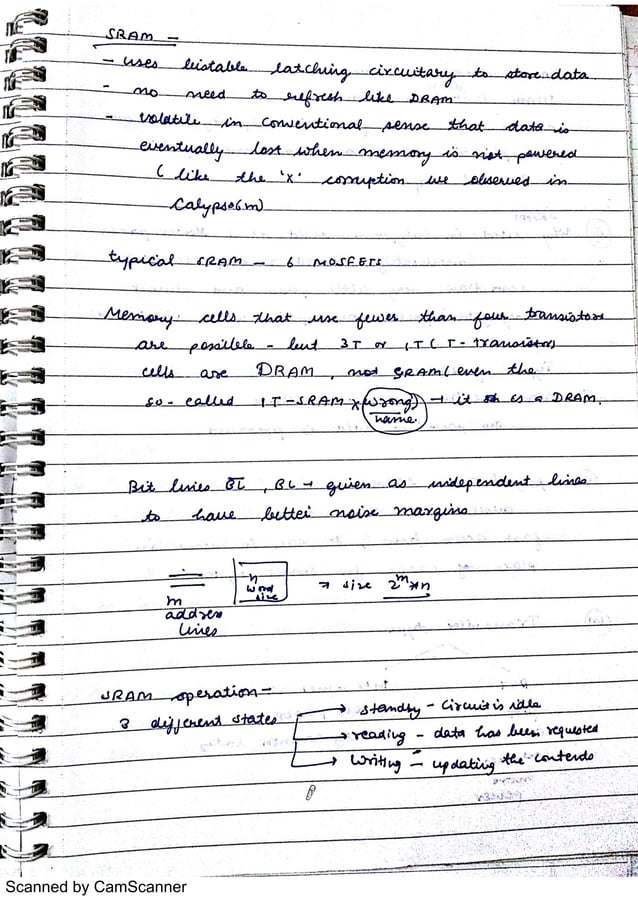 SRAM -
- uses bistable latching circuitary to store data
- no need to refresh like DRAM
- volatile in conventional sense that data is
eventually lost when memory is not powered
( like the 'x' corruption we observed in
Calypso6m)
typical SRAM - 6 MOSFETS
Memory cells that use fewer than four transistors
are possible - but 3T or 1T ( T - transistor)
cells are DRAM, not SRAM ( even the
so-called 1T-SRAM x (wrong) → it is a DRAM.
name.
Bit lines B̅L̅, BL → given as independent lines
to have better noise margins
n
word
size
→ size 2^m*n
m
address
lines
SRAM operation -
3 different states
→ standby - circuit is idle
→ reading - data has been requested
→ writing - updating the contends
Scanned by CamScanner